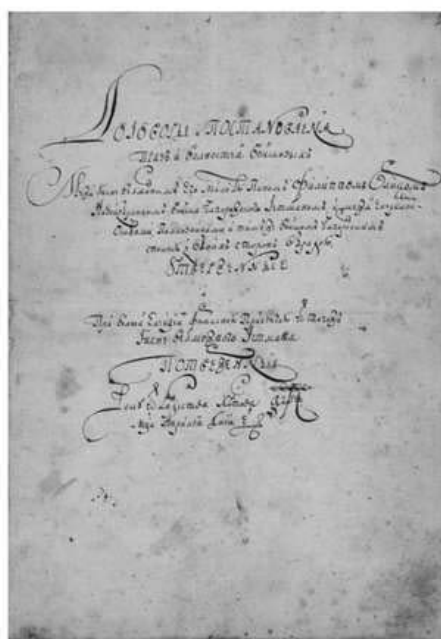 Договоры и Постановленя
Правъ и волностей войсковыхъ
Межи Ясне велможнымъ Его млсти Паномъ Филиппомъ Орликомъ
Новообраннымъ войска Запорожского Гетманомъ, и межи Енералными
Полковниками и тимъ же войскомъ Запорожскимъ
з обоихъ сторонъ обрадою
Утверженные
При волной Елекции Присягою ѿ тогожъ
Ясне велможного Гетмана
Потверженная
Року ѿ Рождества Христова аѱі
Мца Априля